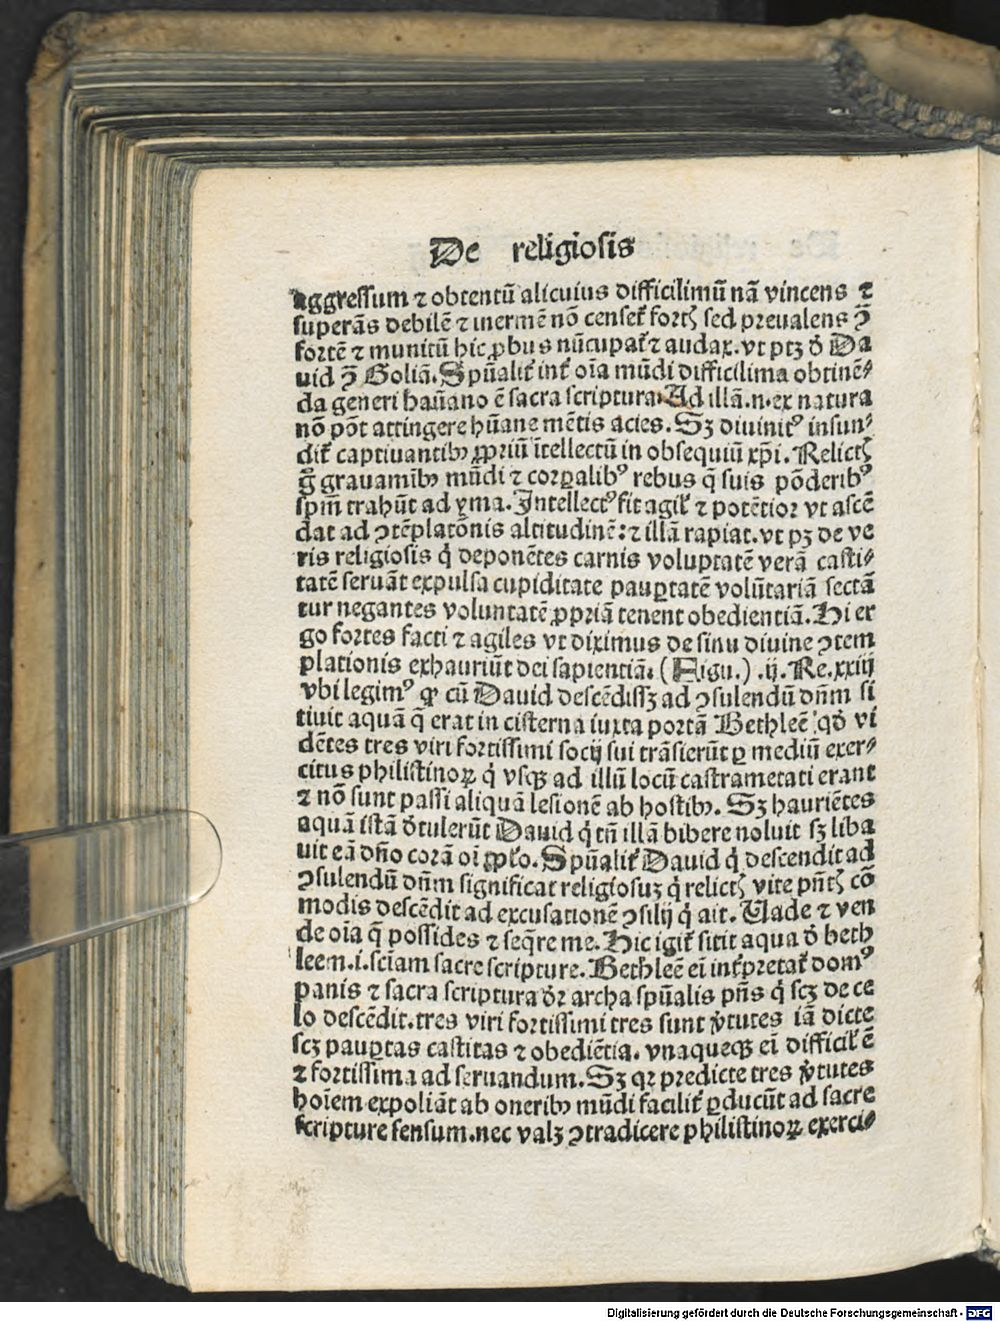 De religiosis
aggressum ⁊ obtentū alicuius difficilimū nã vincens ⁊
superãs debilē ⁊ inermē nõ censet᷑ fortꝭ sed preualens ↄ̃
fortē ⁊ munitū hic ꝓbus nūcupat᷑ ⁊ audax. vt ptꝫ ð Da
uid ↄ̃ Goliã. Spūalit᷑ int᷑ oĩa mūdi difficilima obtinē⸗
da generi hamano ē sacra scriptura. Ad illã .n. ex natura
nõ põt attingere hūane mētis acies. Sꝫ diuinitꝰ infun⸗
dit᷑ captiuantibꝫ ꝓpriū ĩtellectū in obsequiū xp̃i. Relictꝭ
g̃ grauamĩbꝫ mūdi ⁊ corꝑalibꝰ rebus q̃ suis põderibꝰ
spm̃ trahūt ad yma. Intellectꝰ fit agil᷑ ⁊ potētior vt ascē
dat ad ↄ̃tēplatõnis altitudinē: ⁊ illã rapiat. vt pꝫ de ve
ris religiosis q̇ deponētes carnis voluptatē verã casti⸗
tatē seruãt expulsa cupiditate pauꝑtatē volūtariã sectã
tur negantes voluntatē ꝓpriã tenent obedientiã. Hi er
go fortes facti ⁊ agiles vt diximus de sinu diuine ↄtem
plationis exhauriūt dei sapientiã. (Figu.) .ij. Re. xxiij
vbi legimꝰ ꝙ cū Dauid descēdissꝫ ad ↄsulendū dñm si
tiuit aquã q̃ erat in cisterna iuxta portã Bethleē qð vi
dētes tres viri fortissimi socij sui trãsierūt ꝑ mediū exer⸗
citus philistinoꝝ q̇ vsqꝫ ad illū locū castrametati erant
⁊ nõ sunt passi aliquã lesionē ab hostibꝫ. Sꝫ hauriētes
aquã istã ðtulerūt Dauid q̇ tñ illã bibere noluit sꝫ liba
uit eã dño corã oĩ ꝓl᷑o. Spūalit᷑ Dauid q̇ descendit ad
ↄsulendū dñm significat religiosuꝫ q̇ relictꝭ vite pñtꝭ cõ
modis descēdit ad excusationē ↄsilij q̇ ait. Vade ⁊ ven
de oĩa q̃ possides ⁊ seq̃re me. Hic igit᷑ sitit aquã ð beth
leem .i. sciam sacre scripture. Bethleē eĩ int᷑pretat᷑ domꝰ
panis ⁊ sacra scriptura ðr archa spūalis pñs q̇ scꝫ de ce
lo descēdit. tres viri fortissimi tres sunt v̇tutes iã dicte
scꝫ pauꝑtas castitas ⁊ obediētia. vnaqueqꝫ eĩ difficil᷑ ē
⁊ fortissima ad seruandum. Sꝫ qꝛ predicte tres v̇tutes
hoĩem expoliãt ab oneribꝫ mūdi facilit᷑ ꝑducūt ad sacre
scripture sensum. nec valꝫ ↄtradicere philistinoꝝ exerci⸗
Digitalisierung gefördert durch die Deutsche Forschungsgemeinschaft - DFG